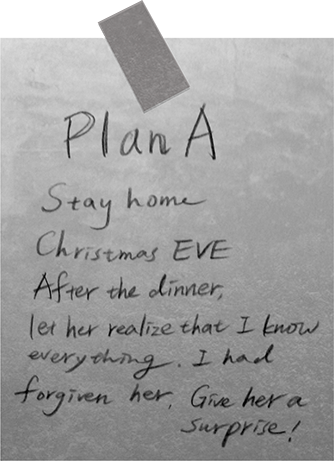 Plan A
Stay home
Christmas EVE
After the dinner,
let her realize that I know
everything. I had
forgiven her. Give her a
surprise!